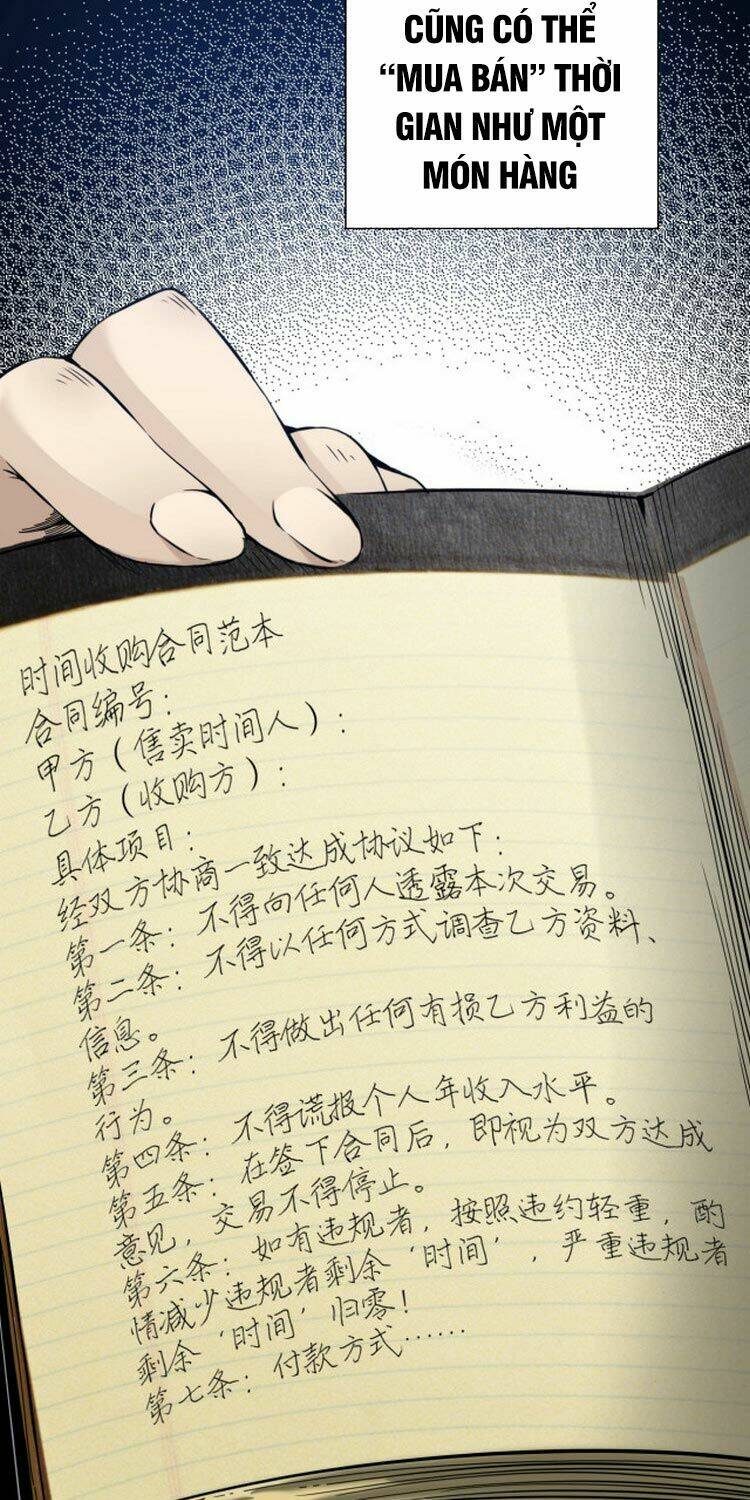 CŨNG CÓ THỂ
“MUA BÁN” THỜI
GIAN NHƯ MỘT
MÓN HÀNG
时间收购合同范本
合同编号：
甲方（售卖时间人）：
乙方（收购方）：
具体项目：
经双方协商一致达成协议如下：
第一条：不得向任何人透露本次交易。
第二条：不得以任何方式调查乙方资料、
信息。
第三条：不得做出任何有损乙方利益的
行为。
第四条：不得谎报个人年收入水平。
第五条：在签下合同后，即视为双方达成
意见，交易不得停止。
第六条：如有违规者，按照违约轻重，酌
情减少违规者剩余‘时间’，严重违规者
剩余‘时间’归零！
第七条：付款方式……